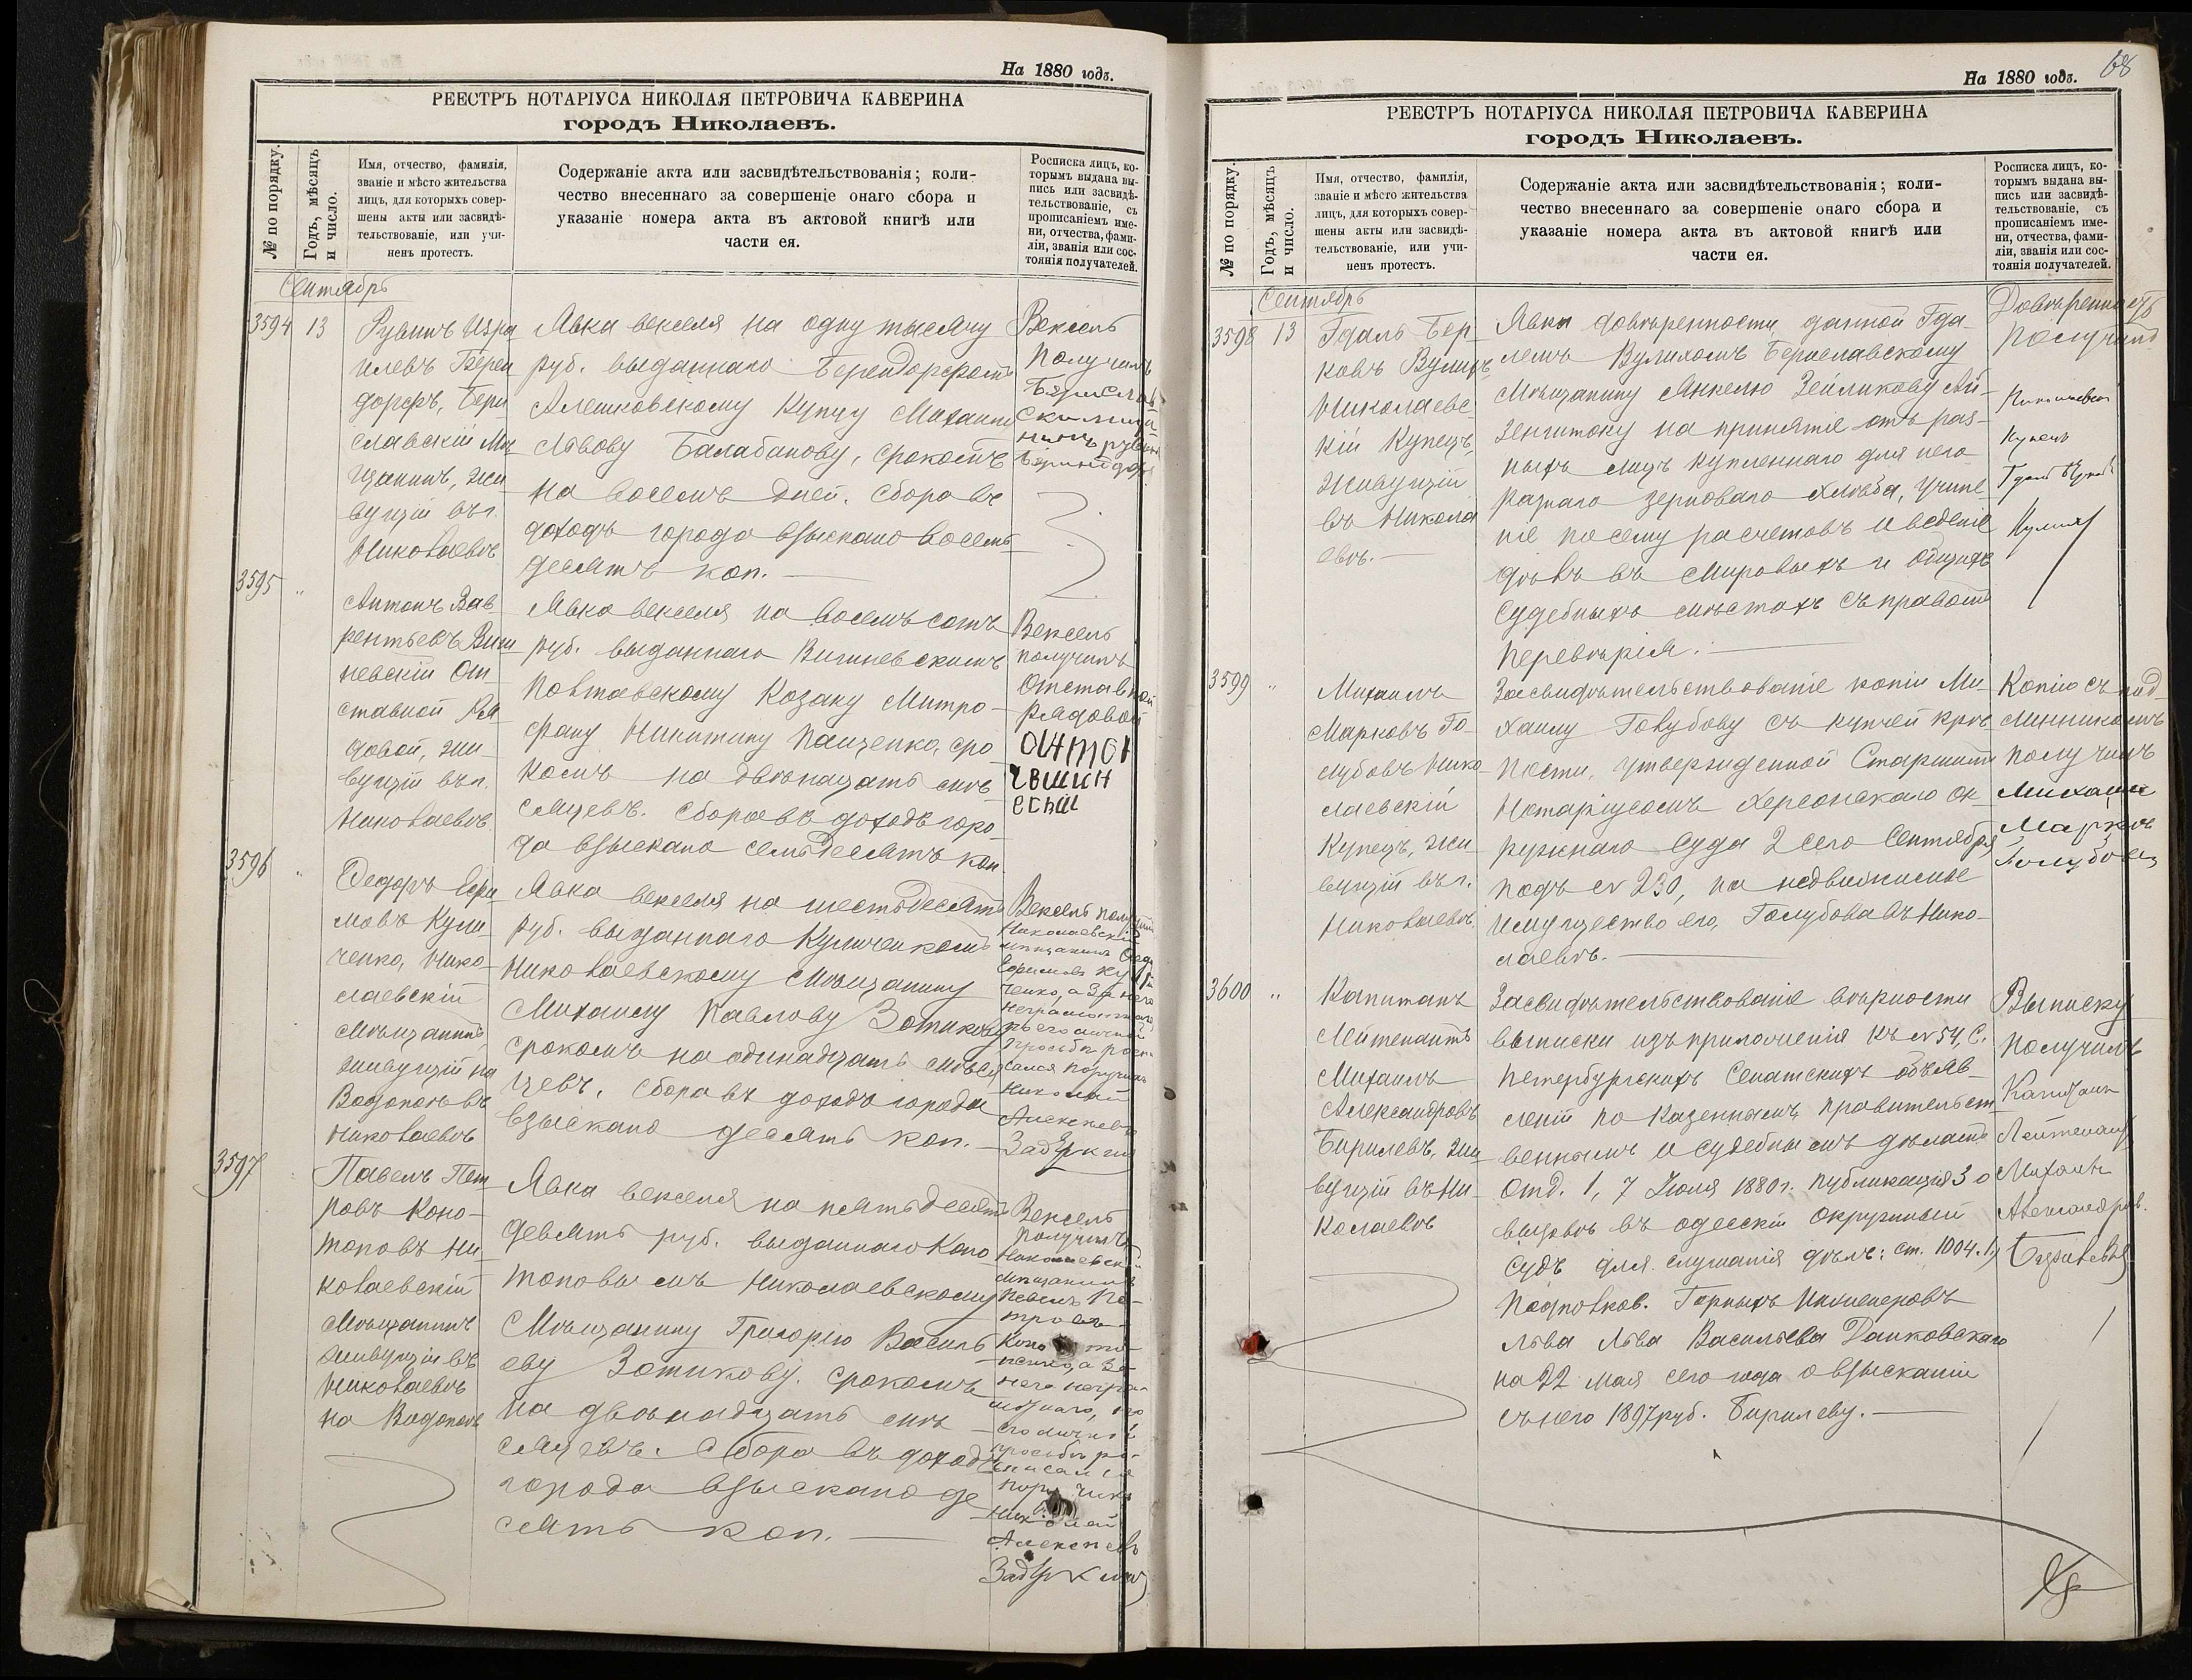 На 1880 годъ.
РЕЕСТРЪ НОТАРІУСА НИКОЛАЯ ПЕТРОВИЧА КАВЕРИНА
городъ Николаевъ.
№ по порядку.
Годъ, мѣсяцъ
и число.
Имя, отчество, фамилія,
званіе и мѣсто жительства
лицъ, для которыхъ совер-
шены акты или засвидѣ-
тельствованіе, или учи-
ненъ протестъ.
Содержаніе акта или засвидѣтельствованія; коли-
чество внесеннаго за совершеніе онаго сбора и
указаніе номера акта въ актовой книгѣ или
части ея.
Росписка лицъ, ко-
торымъ выдана вы-
пись или засвидѣ-
тельствованіе, съ
прописаніемъ име-
ни, отчества, фами-
ліи, званія или сос-
тоянія получателей.
Сентябрь
3594
13
Рувинъ Изра
илевъ Берен
дорфъ, Бери
славскій Мѣ
щанинъ, жи
вущій въ г.
Николаевѣ
Явка векселя на одну тысячу
руб. выданнаго Берендорфомъ
Алешковскому Купцу Михаилу
Львову Балабанову, срокомъ
на восемь дней. Сбора въ
доходъ города взыскано восемь
десятъ коп.
Вексель
получилъ
3595
"
Антонъ Лав
рентьевъ Виш
невскій От
ставной Ря
довой, жи
вущій въ г.
Николаевѣ
Явка векселя на восемьсотъ
руб. выданнаго Вишневскимъ
Полтавскому Козаку Митро-
фану Никитину Пащенко, сро
комъ на двѣнадцать мѣ
сяцевъ. Сбора въ доходъ горо-
да взыскано семьдесятъ коп.
Вексель
получилъ
Отставной
рядовой
антон
3596
"
Федоръ Ефи
мовъ Кули
ченко, Нико-
лаевскій
Мѣщанинъ,
живущій на
Водопоѣ въ
Николаевѣ
Явка векселя на шестьдесятъ
руб. выданнаго Куличенкомъ
Николаевскому Мѣщанину
Михаилу Павлову Зотикову
срокомъ на одинадцать мѣся
цевъ. Сбора въ доходъ города
взыскано десять коп.
Вексель получилъ
Николаевскій
мѣщанинъ Федоръ
Ефимовъ Кули
ченко, а за него
неграмотнаго
по его личной
просьбѣ роспи
сался поручикъ
Николай
Алексѣевъ
3597
"
Павелъ Пет
ровъ Коно-
топовъ Ни-
колаевскій
Мѣщанинъ
живущій въ
Николаевѣ
на Водопоѣ
Явка векселя на пятьдесятъ
девять руб. выданнаго Коно
топовымъ Николаевскому
Мѣщанину Григорію Василь
еву Зотикову. срокомъ
на двѣнадцать мѣ
сяцевъ. Сбора въ доходъ
города взыскано де
сять коп.
Вексель
получилъ
Николаевскій
мѣщанинъ
Павелъ Пе-
тровъ
него негра-
мотнаго, по
его личной
просьбѣ ро-
списался
поручикъ
Николай
Алексѣевъ
68
На 1880 годъ.
РЕЕСТРЪ НОТАРІУСА НИКОЛАЯ ПЕТРОВИЧА КАВЕРИНА
городъ Николаевъ.
№ по порядку.
Годъ, мѣсяцъ
и число.
Имя, отчество, фамилія,
званіе и мѣсто жительства
лицъ, для которыхъ совер-
шены акты или засвидѣ-
тельствованіе, или учи-
ненъ протестъ.
Содержаніе акта или засвидѣтельствованія; коли-
чество внесеннаго за совершеніе онаго сбора и
указаніе номера акта въ актовой книгѣ или
части ея.
Росписка лицъ, ко-
торымъ выдана вы-
пись или засвидѣ-
тельствованіе, съ
прописаніемъ име-
ни, отчества, фами-
ліи, званія или сос-
тоянія получателей.
Сентябрь
3598
13
Гдаль Бер-
ковъ Вулихъ
Николаевс-
кій Купецъ,
живущій
въ Никола
евѣ.
Явка довѣренности данной Гда-
лемъ Вулихомъ Бериславскому
Мѣщанину Анкелю Зейликову Ай-
зенштоку на принятіе отъ раз-
ныхъ лицъ купленнаго для него
разнаго зерноваго хлѣба, учине
ніе по сему расчетовъ и веденіе
дѣлъ въ Мировыхъ и общихъ
судебныхъ мѣстахъ съ правомъ
перевѣрія.
Довѣренность
получилъ
Николаевскій
Купецъ
3599
"
Михаилъ
Марковъ Го-
лубовъ Нико-
лаевскій
Купецъ, жи-
вущій въ г.
Николаевѣ.
Засвидѣтельствованіе копіи Ми-
хаилу Голубову съ купчей крѣ-
пости, утвержденной Старшимъ
Нотаріусомъ Херсонскаго Ок-
ружнаго Суда 2 сего Сентября,
подъ № 230, на недвижимое
имущество его, Голубова въ Нико-
лаевѣ.
Копію съ под-
линникомъ
получилъ
Михаилъ
Марковъ
Голубовъ
3600
"
Капитанъ
Лейтенантъ
Михаилъ
Александровъ
Бирилевъ, жи-
вущій въ Ни-
колаевѣ
Засвидѣтельствованіе вѣрности
выписки изъ приложенія къ № 54, С.
Петербургскихъ Сенатскихъ объяв-
леній по казеннымъ, правительст-
веннымъ и судебнымъ дѣламъ
отд. 1, 7 Іюля 1880 г. публикація 3 о
вызовѣ въ одесскій Окружный
Судъ для слушанія дѣлъ: ст. 1004. 1)
Подполков. Горныхъ Инженеровъ
Льва Льва Васильева Данковскаго
на 22 мая сего года о взысканіи
съ него 1897 руб. Бирилеву.
Выписку
получилъ
Капитанъ
Лейтенантъ
Михаилъ
Александров.
Бирилевъ